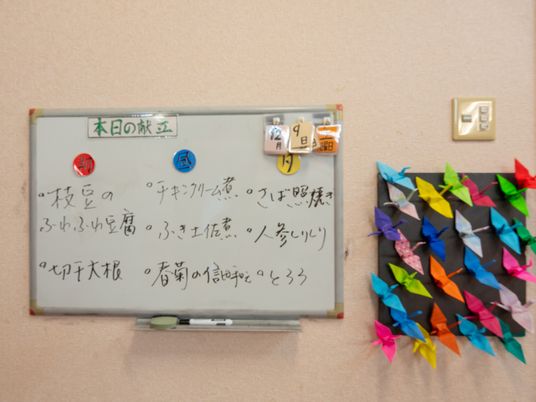 本日の献立
12月 9日 土曜日
朝
・枝豆の
ふわふわ豆腐
・切干大根
昼
・チキンクリーム煮
・ふき土佐煮
・春菊の信田和え
夕
・さば照焼き
・人参しりしり
・とろろ